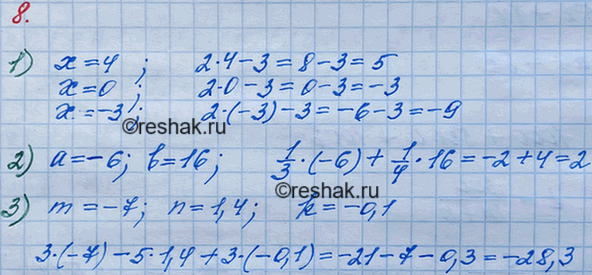 8.
1) x=4 ; 2·4-3=8-3=5
x=0 ; 2·0-3=0-3=-3
x=-3; 2·(-3)-3=-6-3=-9
©reshak.ru
2) a=-6; b=16; 1/3·(-6)+1/4·16=-2+4=2
3) m=-7; n=1,4; k=-0,1
©reshak.ru
3·(-7)-5·1,4+3·(-0,1)=-21-7-0,3=-28,3